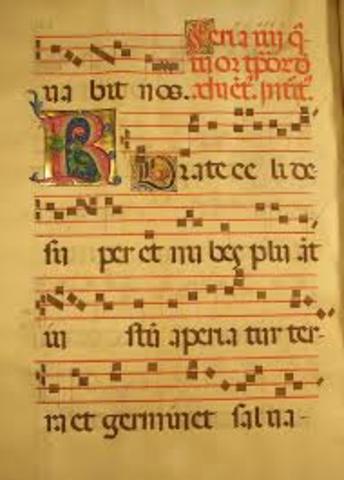 Feria iiij q̃
uor tp̃ord
ua bit nos. aduēt. Intiit.
R Orate ce li de
su per et nu bes plu ãt
iu stũ aperia tur ter-
ra et germinet salua-